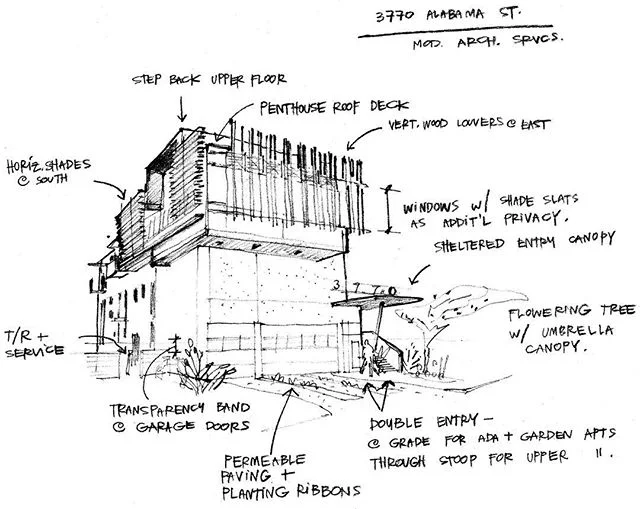 3770 ALABAMA ST.
MOD. ARCH. SRVCS.
STEP BACK UPPER FLOOR
PENTHOUSE ROOF DECK
VERT. WOOD LOUVERS @ EAST
HORIZ. SHADES
@ SOUTH
WINDOWS W/ SHADE SLATS
AS ADDIT'L PRIVACY.
SHELTERED ENTRY CANOPY
3770
FLOWERING TREE
W/ UMBRELLA
CANOPY.
T/R +
SERVICE
TRANSPARENCY BAND
@ GARAGE DOORS
DOUBLE ENTRY —
@ GRADE FOR ADA + GARDEN APTS
THROUGH STOOP FOR UPPER ".
PERMEABLE
PAVING +
PLANTING RIBBONS